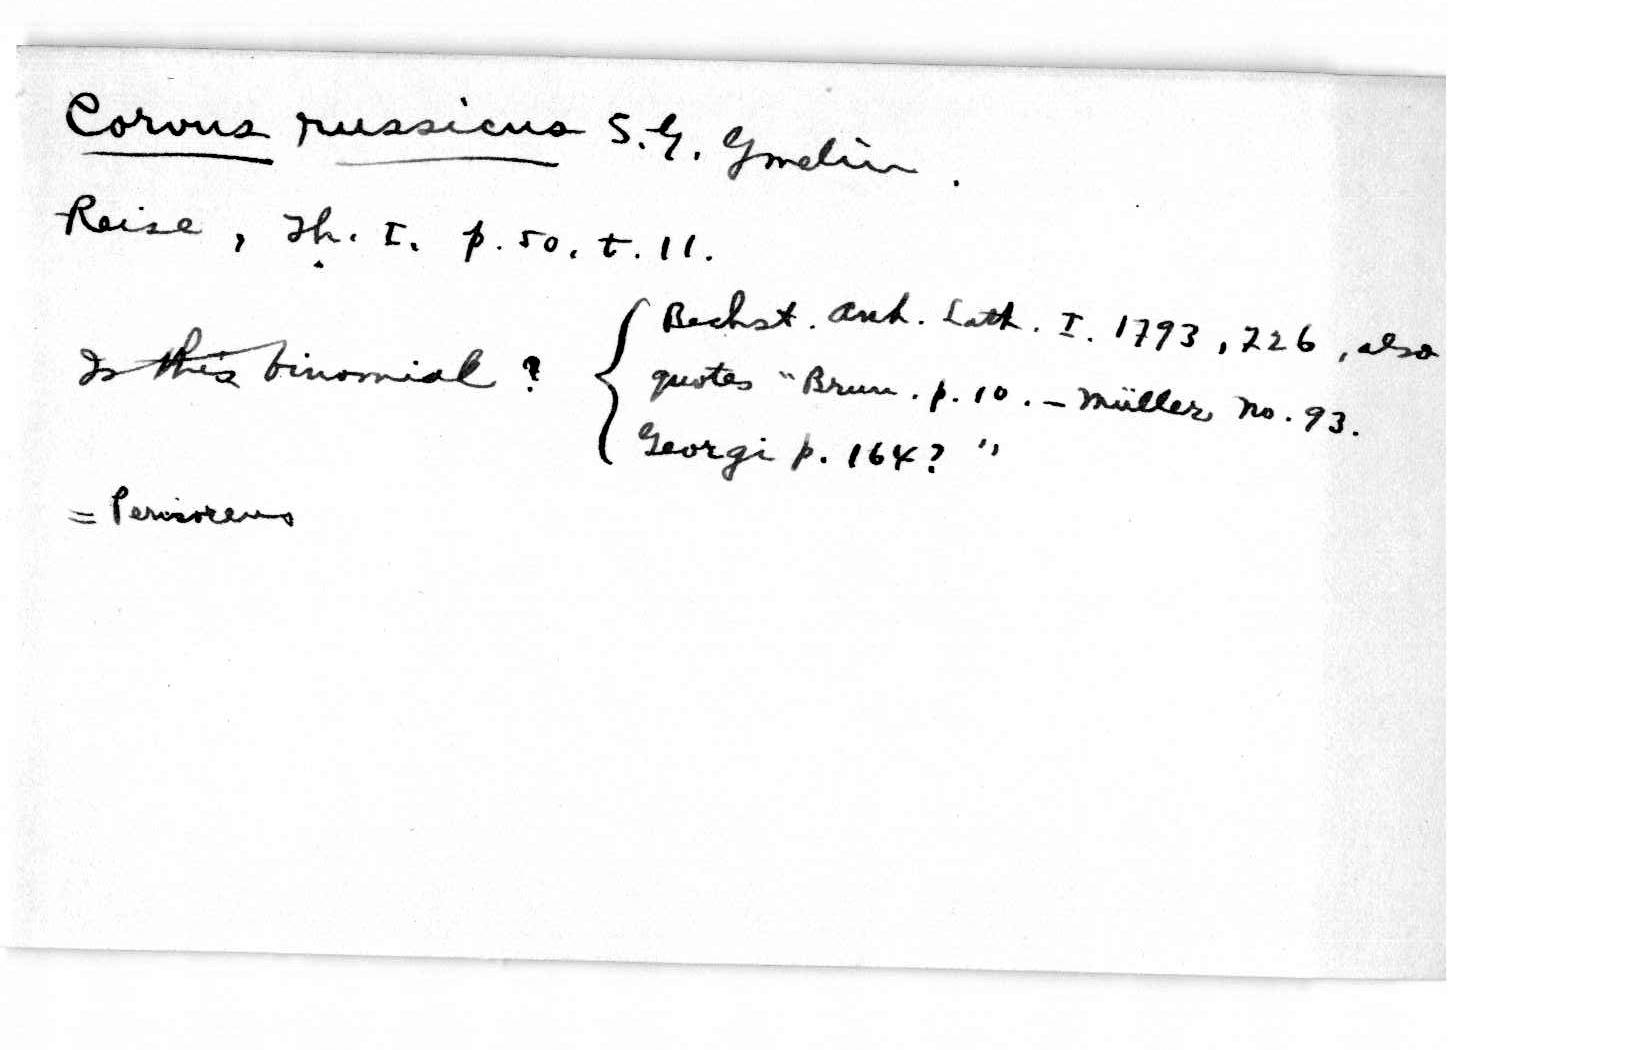 Corvus russicus S.G. Gmelin.
Reise, Th. I. p. 50. t. 11.
Is this binomial ?
Bechst. Anh. Lath. I. 1793, 226, also
quotes "Brun. p. 10. – Müller no. 93.
Georgi p. 164? "
= Perisoreus